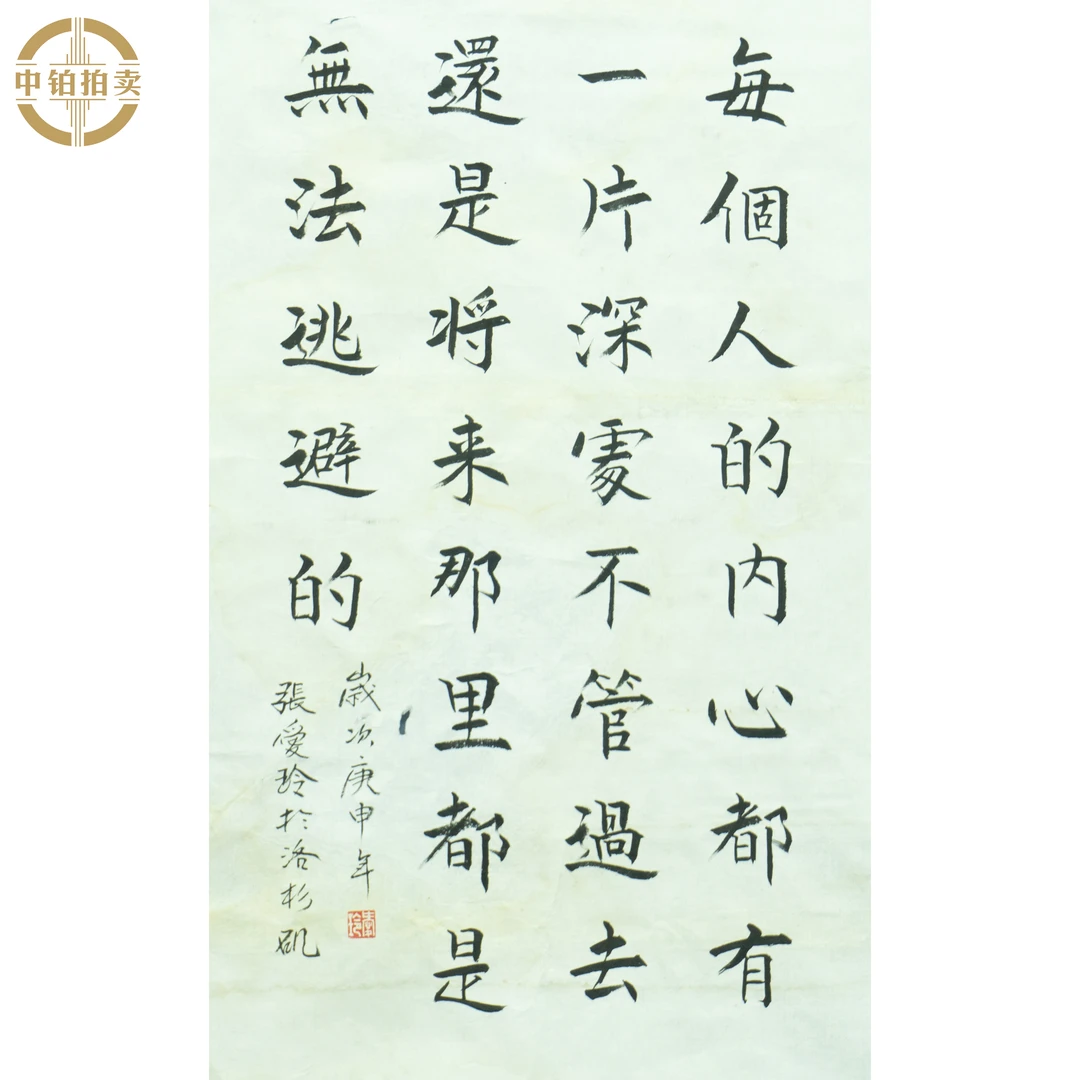 中铂拍卖
每個人的内心都有
一片深處不管過去
還是将来那里都是
無法逃避的
歲次庚申年
張愛玲於洛杉矶